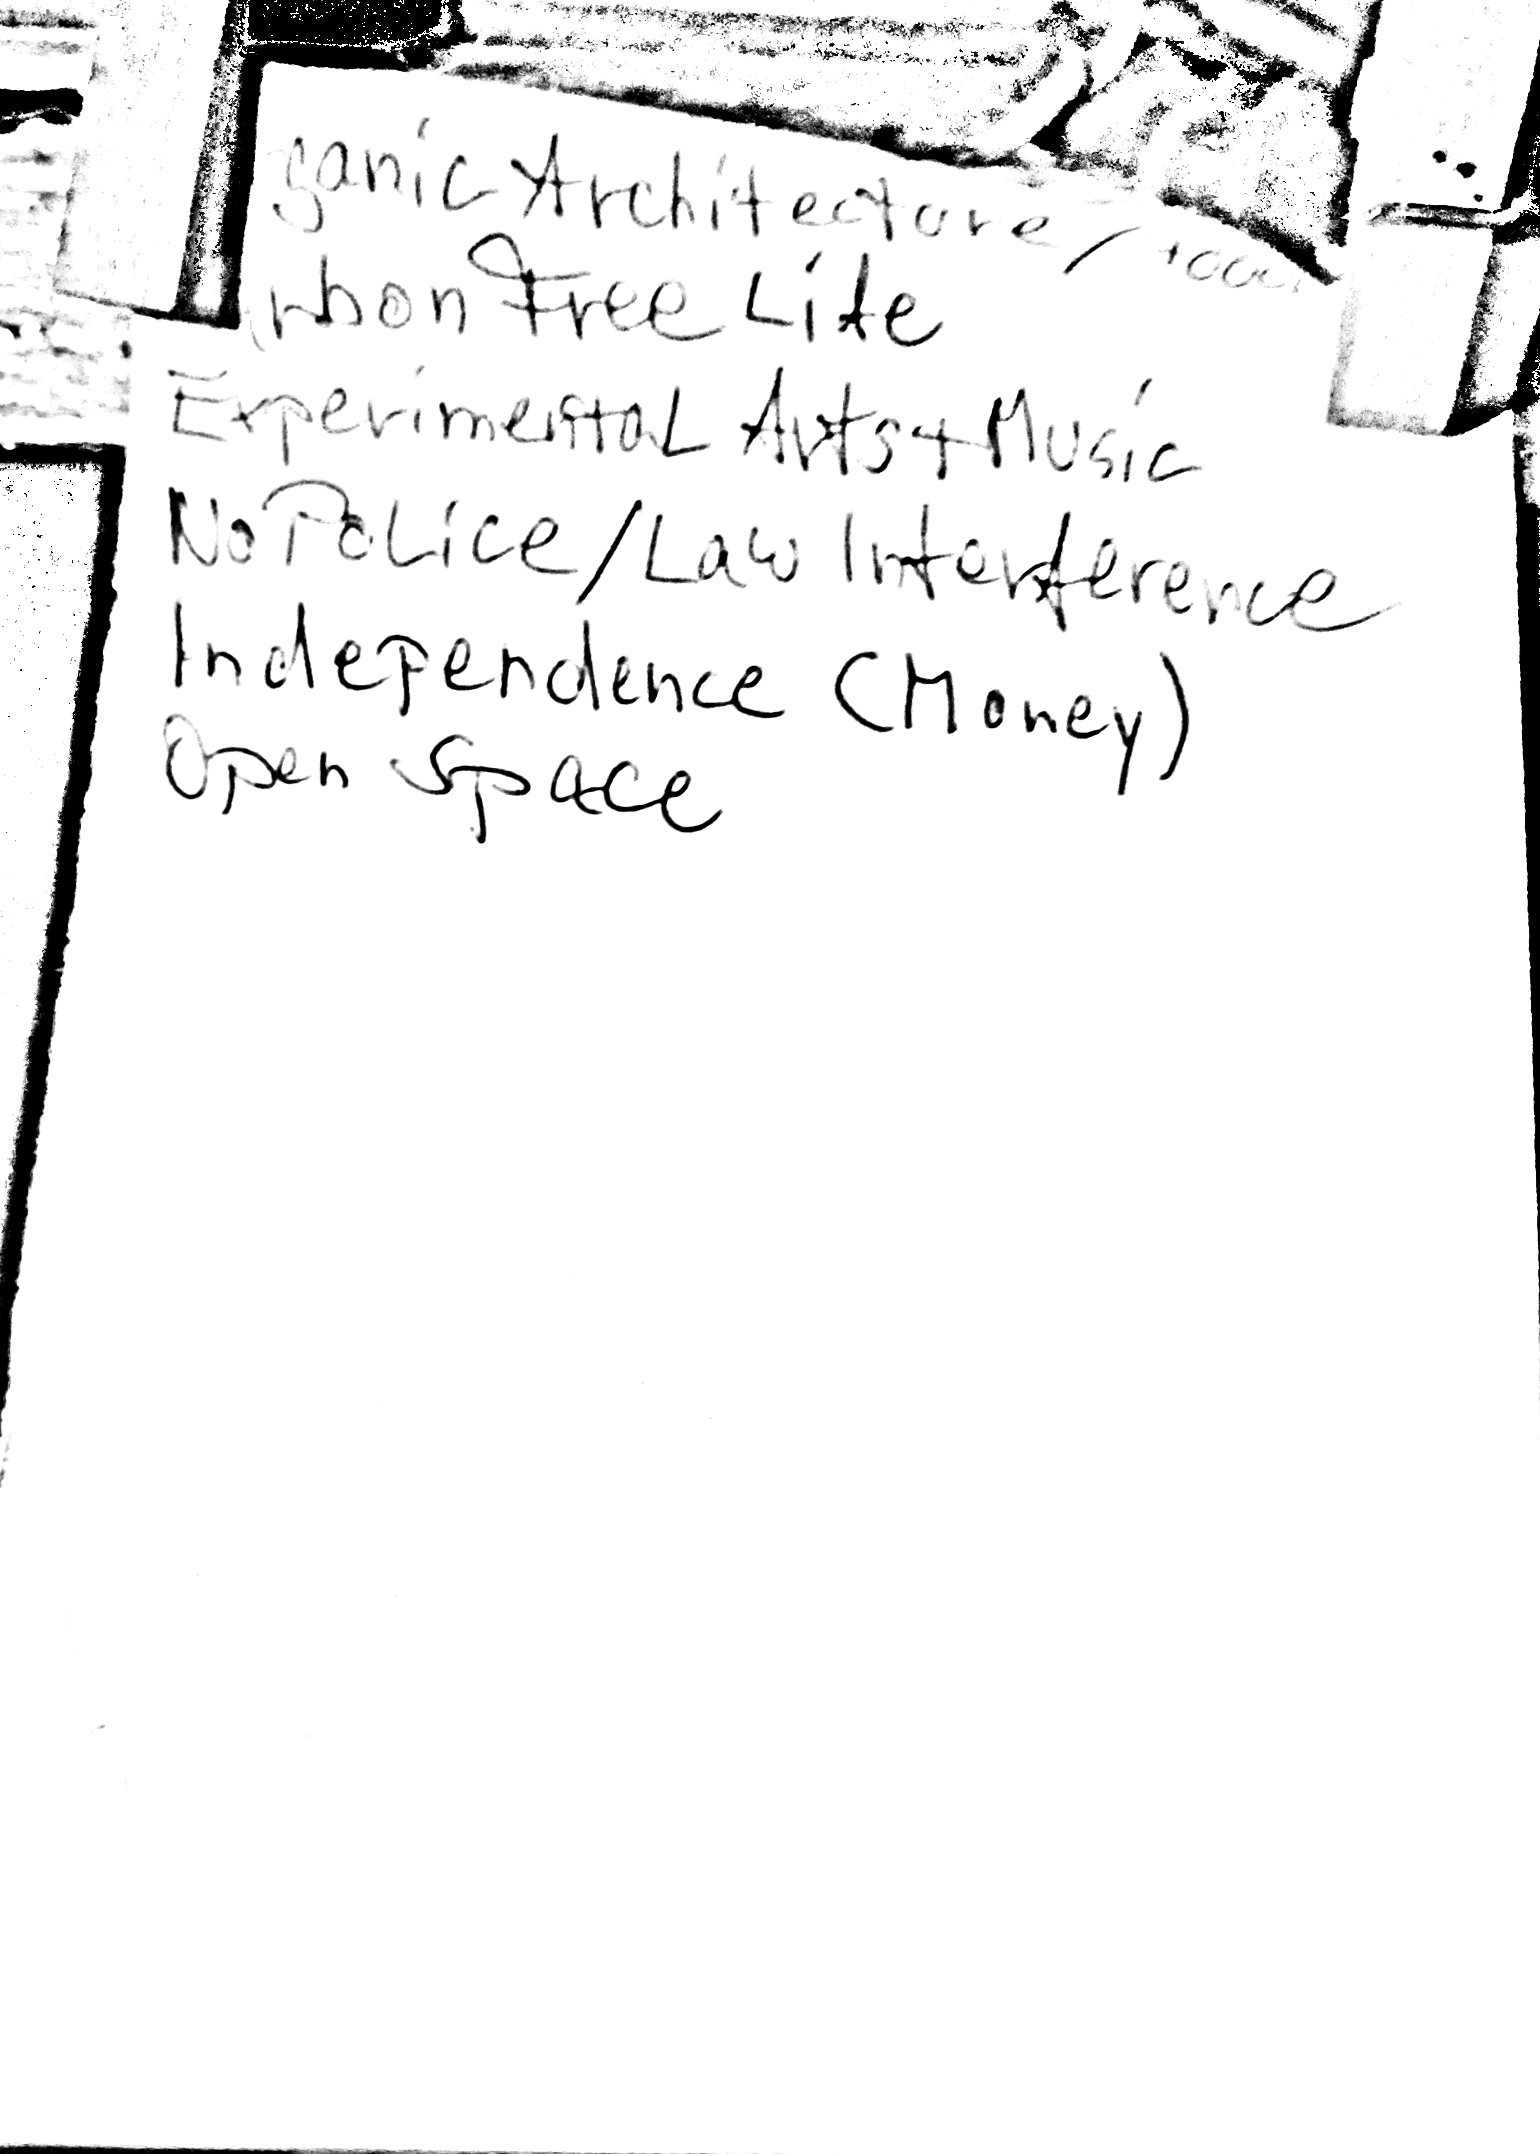 ganic Architecture /
rbon Free Life
Experimental Arts + Music
No Police / Law Interference
Independence (Money)
Open Space